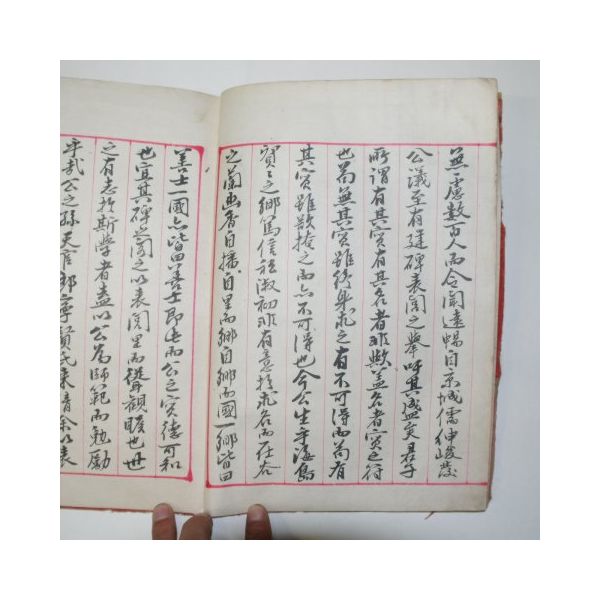 無慮數百人而令聞遠暢自京城儒紳峻發
公議至有建碑表閭之擧吁其盛矣君子
所謂有其實有其名者非歟盖名者實之符
也苟無其實雖終身求之有不可得而苟有
其實雖欲掩之而亦不可得也今公生乎海島
賀之鄕篤信私淑初非有意於求名而在谷
之蘭幽香自播自里而鄕自鄕而國一鄕皆曰
善士一國亦皆曰善士即此而公之實德可知
也宜其碑之閭之以表閭里而聳觀瞻也世
之有志於斯學者盍以公爲師範而勉勵
乎哉公之孫天官郞寧賢氏來請余以表